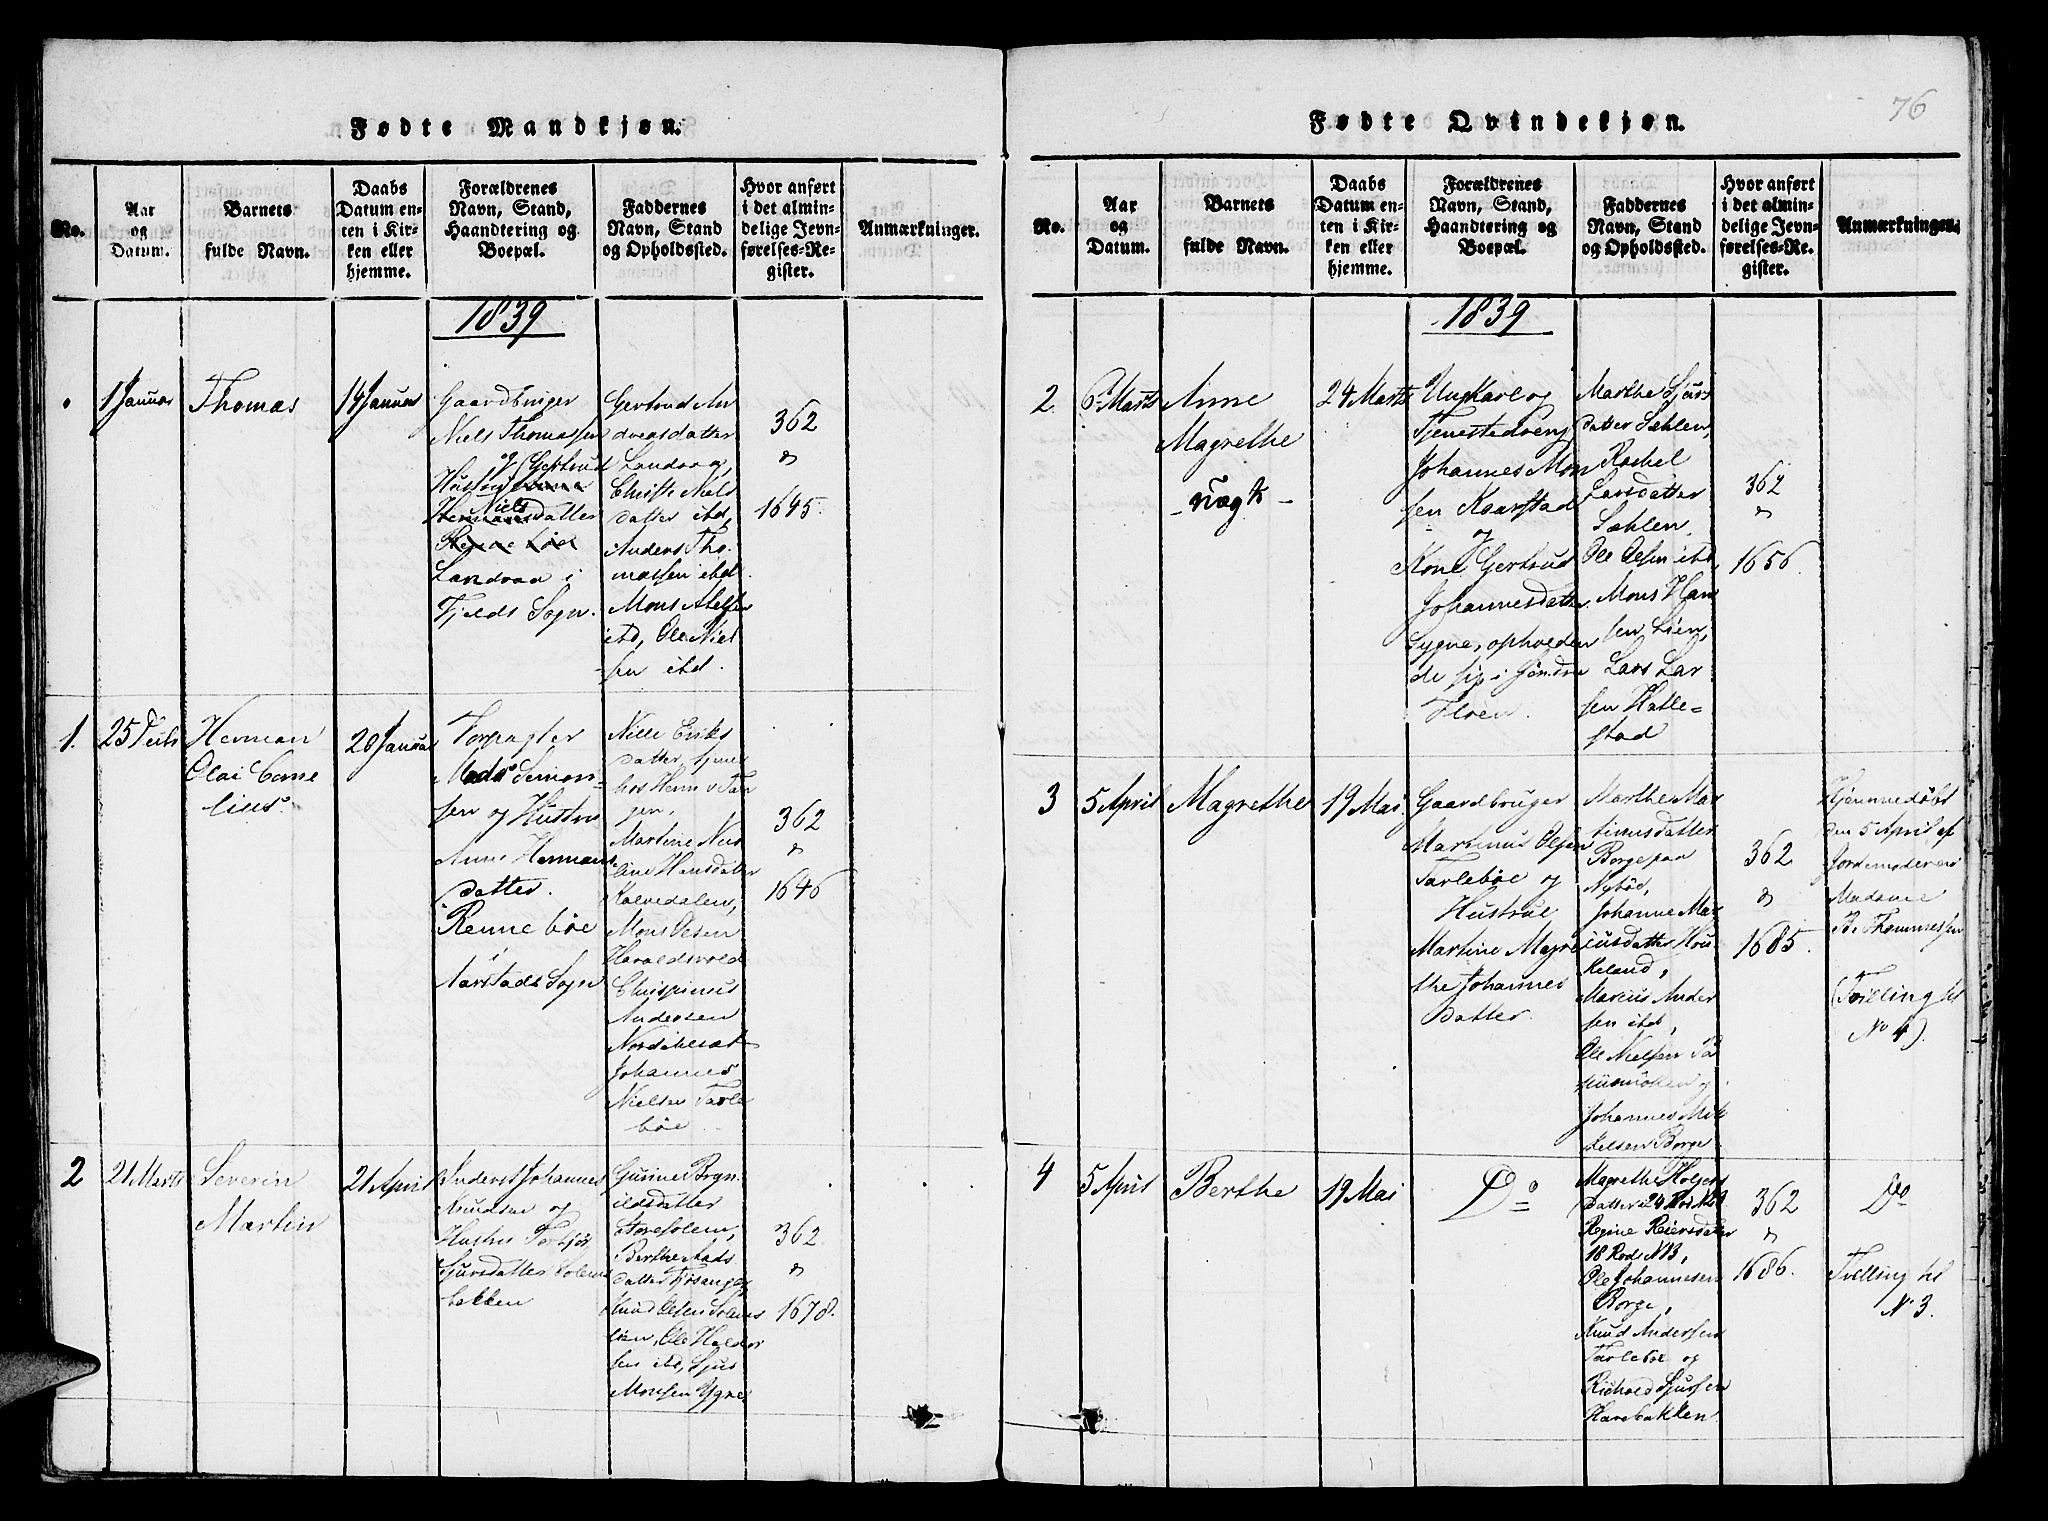 76
Fødte Mandkjøn.
No.
Aar og Datum.
Barnets fulde Navn.
Daabs Datum enten i Kirken eller hjemme.
Forældrenes Navn, Stand, Haandtering og Boepæl.
Faddernes Navn, Stand og Opholdssted.
Hvor anført i det almindelige Jevnførelses-Register.
Anmærkninger.
1839
1 Januar
Thomas
14 Januar
Gaardbruger
Niels Thomassen
og Gertrud
Niels
datter
Landraa i
Fjelds Sogn.
Gertrud An
dreasdatter
Landraa,
Christe Niels
datter ibd,
Anders Tho
massen ibd
Mons Abelsen
ibd, Ole Niel
sen ibd.
362
&
1645.
1.
25
Herman
Olai Corne
lius.
20 Januar
Forpagter
Mads Simon-
sen og Hustru
Anne Hermans
datter.
Rennebøe
i
Aarstads Sogn
Nille Eriks
datter
hos Herm v Tan
gen,
Martine Nico
line Hansdatter
Kalvedalen,
Mons Olsen
Haraldsvold
Chrispinus
Andersen
Johannes
Nielsen Tarle
bøe.
362
&
1646
2
21 Marts
Severin
Martin
21 April
Anders Johannes
Knudsen og
Hustru
Sjursdatter Solem
bakken
Gunne
ildsdatter
Berthe Mads
datter Fjøsanger
Knud Olsen Solem
lien, Ole Haldor
sen ibd, Sjur
Monsen Ygre
362.
&
1678.
Fødte Qvindekjøn.
No.
Aar og Datum.
Barnets fulde Navn.
Daabs Datum enten i Kirken eller hjemme.
Forældrenes Navn, Stand, Haandtering og Boepæl.
Faddernes Navn, Stand og Opholdssted.
Hvor anført i det almindelige Jevnførelses-Register.
Anmærkninger.
1839
2.
6 Marts
Anne
Magrethe
- uægt -
24 Marts
Ungkarl og
Tjenestedreng
Johannes Mon
sen Kaarstad
og
Kone Gertrud
Johannesdatter
Sygne, opholden
de sig i Søndre
Floen.
Marthe Sjurs
datter Sæhlen,
Rachel
Larsdatter
Sæhlen,
Ole Olsen ibd,
Mons Han
sen Lien,
Lars Lar
sen Hatle-
stad
362
&
1656.
3
5 April
Magrethe
19 Mai
Gaardbruger
Martinus Olsen
Tarlebøe og
Hustrue
Martine Magre
the Johannes
datter
Marthe Mar
tinusdatter
Borgeskar
Nybøe,
Johanne Mar
cusdatter Hou
keland,
Marcus Ander
sen ibd,
Ole Nielsen
Johannes Mik
kelsen Borge
362
&
1685.
Hjemmedøbt
den 5 April af
Jordemoderen
Madame
B. Thommesen
(Tvilling til
No 4).
4
5 April
Berthe
19 Mai
Do
Magrethe Holgers
datter 24 Rod
Regine Reiersdatter
18 Rode N 13,
Ole Johannesen
Borge,
Knud Andersen
Tarlebøe og
Richold Sjursen
Harebakken
362
&
1686.
Do
Tvilling til
N 3.